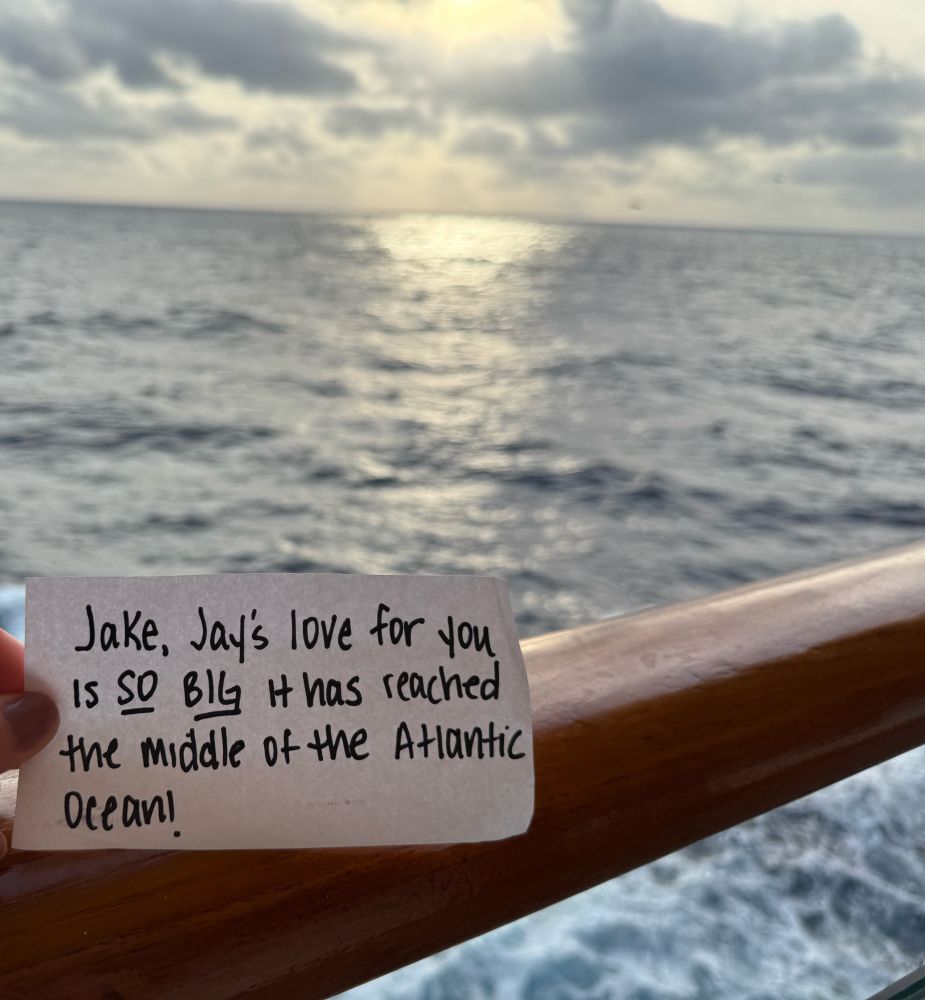 Jake, Jay's love for you
is SO BIG it has reached
the middle of the Atlantic
Ocean!